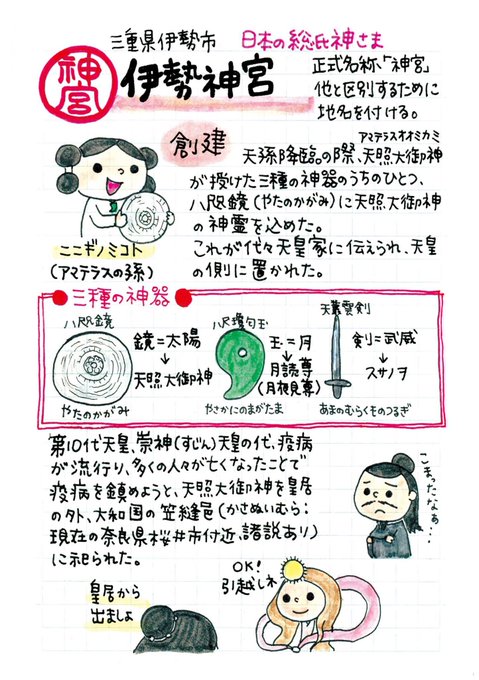 三重県伊勢市 日本の総氏神さま
神宮
伊勢神宮
正式名称「神宮」
他と区別するために
地名を付ける。
創建
アマテラスオオミカミ
天孫降臨の際、天照大御神
が授けた三種の神器のうちのひとつ、
八咫鏡(やたのかがみ)に天照大御神
の神霊を込めた。
これが代々天皇家に伝えられ、天皇
の側に置かれた。
ニニギノミコト
(アマテラスの孫)
三種の神器
八咫鏡
鏡=太陽
↓
天照大御神
やたのかがみ
八尺瓊勾玉
玉=月
↓
月読尊
(月視尊)
やさかにのまがたま
天叢雲剣
剣=武威
↓
スサノヲ
あまのむらくものつるぎ
第10代天皇、崇神(すじん)天皇の代、疫病
が流行り、多くの人々が亡くなったことで
疫病を鎮めようと、天照大御神を皇居
の外、大和国の笠縫邑(かさぬいむら:
現在の奈良県桜井市付近、諸説あり)
に祀られた。
こまったなぁ…
皇居から
出ましょ
OK!
引越しね